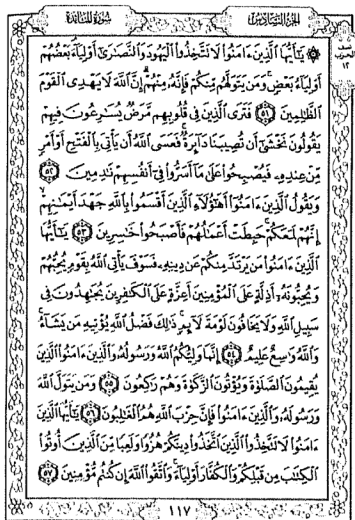 الجزء السادس
سورة المائدة
۞ يَٰٓأَيُّهَا ٱلَّذِينَ ءَامَنُوا۟ لَا تَتَّخِذُوا۟ ٱلْيَهُودَ وَٱلنَّصَٰرَىٰٓ أَوْلِيَآءَ بَعْضُهُمْ
أَوْلِيَآءُ بَعْضٍ وَمَن يَتَوَلَّهُم مِّنكُمْ فَإِنَّهُۥ مِنْهُمْ إِنَّ ٱللَّهَ لَا يَهْدِى ٱلْقَوْمَ
ٱلظَّٰلِمِينَ ٥١ فَتَرَى ٱلَّذِينَ فِى قُلُوبِهِم مَّرَضٌ يُسَٰرِعُونَ فِيهِمْ
يَقُولُونَ نَخْشَىٰٓ أَن تُصِيبَنَا دَآئِرَةٌ فَعَسَى ٱللَّهُ أَن يَأْتِىَ بِٱلْفَتْحِ أَوْ أَمْرٍ
مِّنْ عِندِهِۦ فَيُصْبِحُوا۟ عَلَىٰ مَآ أَسَرُّوا۟ فِىٓ أَنفُسِهِمْ نَٰدِمِينَ ٥٢
وَيَقُولُ ٱلَّذِينَ ءَامَنُوٓا۟ أَهَٰٓؤُلَآءِ ٱلَّذِينَ أَقْسَمُوا۟ بِٱللَّهِ جَهْدَ أَيْمَٰنِهِمْ
إِنَّهُمْ لَمَعَكُمْ حَبِطَتْ أَعْمَٰلُهُمْ فَأَصْبَحُوا۟ خَٰسِرِينَ ٥٣ يَٰٓأَيُّهَا
ٱلَّذِينَ ءَامَنُوا۟ مَن يَرْتَدَّ مِنكُمْ عَن دِينِهِۦ فَسَوْفَ يَأْتِى ٱللَّهُ بِقَوْمٍ يُحِبُّهُمْ
وَيُحِبُّونَهُۥٓ أَذِلَّةٍ عَلَى ٱلْمُؤْمِنِينَ أَعِزَّةٍ عَلَى ٱلْكَٰفِرِينَ يُجَٰهِدُونَ فِى
سَبِيلِ ٱللَّهِ وَلَا يَخَافُونَ لَوْمَةَ لَآئِمٍ ذَٰلِكَ فَضْلُ ٱللَّهِ يُؤْتِيهِ مَن يَشَآءُ
وَٱللَّهُ وَٰسِعٌ عَلِيمٌ ٥٤ إِنَّمَا وَلِيُّكُمُ ٱللَّهُ وَرَسُولُهُۥ وَٱلَّذِينَ ءَامَنُوا۟ ٱلَّذِينَ
يُقِيمُونَ ٱلصَّلَوٰةَ وَيُؤْتُونَ ٱلزَّكَوٰةَ وَهُمْ رَٰكِعُونَ ٥٥ وَمَن يَتَوَلَّ ٱللَّهَ
وَرَسُولَهُۥ وَٱلَّذِينَ ءَامَنُوا۟ فَإِنَّ حِزْبَ ٱللَّهِ هُمُ ٱلْغَٰلِبُونَ ٥٦ يَٰٓأَيُّهَا ٱلَّذِينَ
ءَامَنُوا۟ لَا تَتَّخِذُوا۟ ٱلَّذِينَ ٱتَّخَذُوا۟ دِينَكُمْ هُزُوًا وَلَعِبًا مِّنَ ٱلَّذِينَ أُوتُوا۟
ٱلْكِتَٰبَ مِن قَبْلِكُمْ وَٱلْكُفَّارَ أَوْلِيَآءَ وَٱتَّقُوا۟ ٱللَّهَ إِن كُنتُم مُّؤْمِنِينَ ٥٧
نصف
الحزب
١٢
١١٧